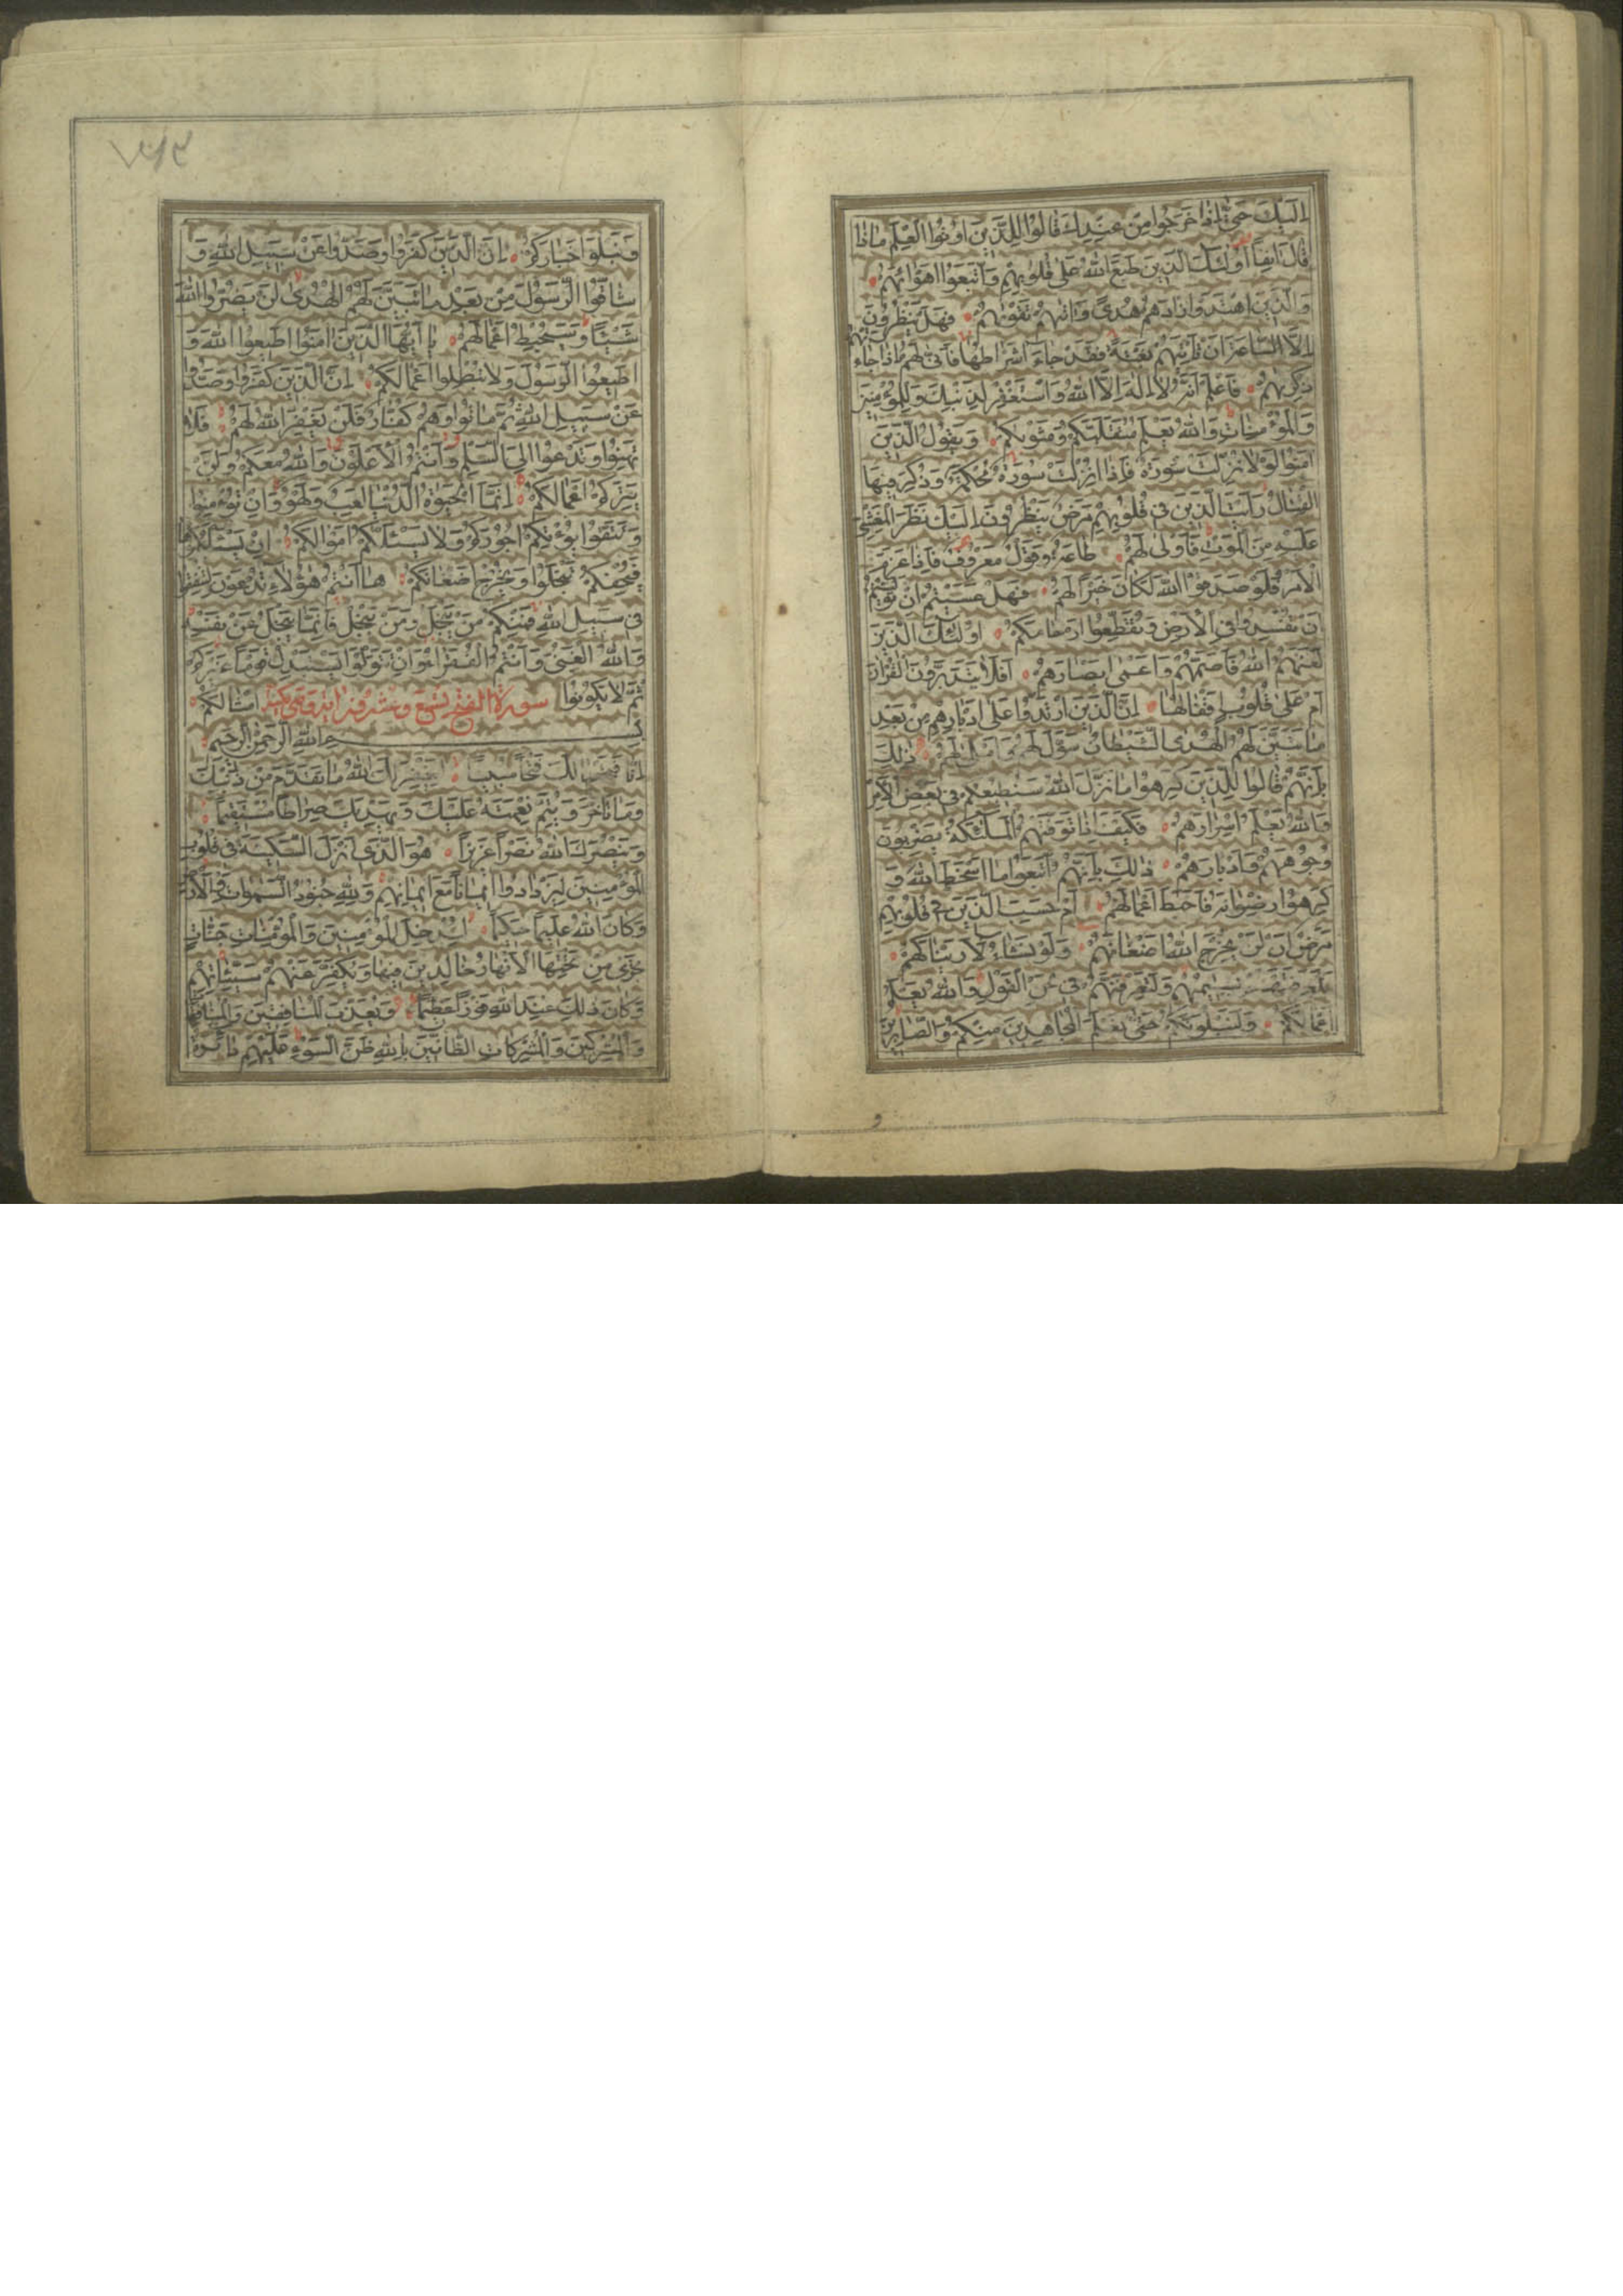 اِلَيْكَ حَتّٰى اِذٰا خَرَجُوا مِنْ عِنْدِكَ قٰالُوا لِلَّذِينَ اُوتُوا الْعِلْمَ مٰاذٰا
قٰالَ اٰنِفًا اُولٰئِكَ الَّذِينَ طَبَعَ اللّٰهُ عَلٰى قُلُوبِهِمْ وَاتَّبَعُوا اَهْوٰائَهُمْ
وَالَّذِينَ اهْتَدَوْا زٰادَهُمْ هُدًى وَاٰتٰيهُمْ تَقْوٰيهُمْ فَهَلْ يَنْظُرُونَ
اِلَّا السّٰاعَةَ اَنْ تَأْتِيَهُمْ بَغْتَةً فَقَدْ جٰاءَ اَشْرٰاطُهٰا فَاَنّٰى لَهُمْ اِذٰا جٰاءَتْهُمْ
ذِكْرٰيهُمْ فَاعْلَمْ اَنَّهُ لٰا اِلٰهَ اِلَّا اللّٰهُ وَاسْتَغْفِرْ لِذَنْبِكَ وَلِلْمُؤْمِنِينَ
وَالْمُؤْمِنٰاتِ وَاللّٰهُ يَعْلَمُ مُتَقَلَّبَكُمْ وَمَثْوٰيكُمْ وَيَقُولُ الَّذِينَ
اٰمَنُوا لَوْلٰا نُزِّلَتْ سُورَةٌ فَاِذٰا اُنْزِلَتْ سُورَةٌ مُحْكَمَةٌ وَذُكِرَ فِيهَا
الْقِتٰالُ رَاَيْتَ الَّذِينَ فِى قُلُوبِهِمْ مَرَضٌ يَنْظُرُونَ اِلَيْكَ نَظَرَ الْمَغْشِىِّ
عَلَيْهِ مِنَ الْمَوْتِ فَاَوْلٰى لَهُمْ طٰاعَةٌ وَقَوْلٌ مَعْرُوفٌ فَاِذٰا عَزَمَ
الْاَمْرُ فَلَوْ صَدَقُوا اللّٰهَ لَكٰانَ خَيْرًا لَهُمْ فَهَلْ عَسَيْتُمْ اِنْ تَوَلَّيْتُمْ
اَنْ تُفْسِدُوا فِى الْاَرْضِ وَتُقَطِّعُوا اَرْحٰامَكُمْ اُولٰئِكَ الَّذِينَ
لَعَنَهُمُ اللّٰهُ فَاَصَمَّهُمْ وَاَعْمٰى اَبْصٰارَهُمْ اَفَلٰا يَتَدَبَّرُونَ الْقُرْاٰنَ
اَمْ عَلٰى قُلُوبٍ اَقْفٰالُهٰا اِنَّ الَّذِينَ ارْتَدُّوا عَلٰى اَدْبٰارِهِمْ مِنْ بَعْدِ
مٰا تَبَيَّنَ لَهُمُ الْهُدَى الشَّيْطٰانُ سَوَّلَ لَهُمْ وَاَمْلٰى لَهُمْ ذٰلِكَ
بِاَنَّهُمْ قٰالُوا لِلَّذِينَ كَرِهُوا مٰا نَزَّلَ اللّٰهُ سَنُطِيعُكُمْ فِى بَعْضِ الْاَمْرِ
وَاللّٰهُ يَعْلَمُ اِسْرٰارَهُمْ فَكَيْفَ اِذٰا تَوَفَّتْهُمُ الْمَلٰئِكَةُ يَضْرِبُونَ
وُجُوهَهُمْ وَاَدْبٰارَهُمْ ذٰلِكَ بِاَنَّهُمُ اتَّبَعُوا مٰا اَسْخَطَ اللّٰهَ وَ
كَرِهُوا رِضْوٰانَهُ فَاَحْبَطَ اَعْمٰالَهُمْ اَمْ حَسِبَ الَّذِينَ فِى قُلُوبِهِمْ
مَرَضٌ اَنْ لَنْ يُخْرِجَ اللّٰهُ اَضْغٰانَهُمْ وَلَوْ نَشٰاءُ لَاَرَيْنٰاكَهُمْ
فَلَعَرَفْتَهُمْ بِسِيمٰيهُمْ وَلَتَعْرِفَنَّهُمْ فِى لَحْنِ الْقَوْلِ وَاللّٰهُ يَعْلَمُ
اَعْمٰالَكُمْ وَلَنَبْلُوَنَّكُمْ حَتّٰى نَعْلَمَ الْمُجٰاهِدِينَ مِنْكُمْ وَالصّٰابِرِينَ
وَنَبْلُوَا اَخْبٰارَكُمْ اِنَّ الَّذِينَ كَفَرُوا وَصَدُّوا عَنْ سَبِيلِ اللّٰهِ وَ
شٰاقُّوا الرَّسُولَ مِنْ بَعْدِ مٰا تَبَيَّنَ لَهُمُ الْهُدٰى لَنْ يَضُرُّوا اللّٰهَ
شَيْئًا وَسَيُحْبِطُ اَعْمٰالَهُمْ يٰا اَيُّهَا الَّذِينَ اٰمَنُوا اَطِيعُوا اللّٰهَ وَ
اَطِيعُوا الرَّسُولَ وَلٰا تُبْطِلُوا اَعْمٰالَكُمْ اِنَّ الَّذِينَ كَفَرُوا وَصَدُّوا
عَنْ سَبِيلِ اللّٰهِ ثُمَّ مٰاتُوا وَهُمْ كُفّٰارٌ فَلَنْ يَغْفِرَ اللّٰهُ لَهُمْ فَلٰا
تَهِنُوا وَتَدْعُوا اِلَى السَّلْمِ وَاَنْتُمُ الْاَعْلَوْنَ وَاللّٰهُ مَعَكُمْ وَلَنْ
يَتِرَكُمْ اَعْمٰالَكُمْ اِنَّمَا الْحَيٰوةُ الدُّنْيٰا لَعِبٌ وَلَهْوٌ وَاِنْ تُؤْمِنُوا
وَتَتَّقُوا يُؤْتِكُمْ اُجُورَكُمْ وَلٰا يَسْئَلْكُمْ اَمْوٰالَكُمْ اِنْ يَسْئَلْكُمُوهٰا
فَيُحْفِكُمْ تَبْخَلُوا وَيُخْرِجْ اَضْغٰانَكُمْ هٰا اَنْتُمْ هٰؤُلٰاءِ تُدْعَوْنَ لِتُنْفِقُوا
فِى سَبِيلِ اللّٰهِ فَمِنْكُمْ مَنْ يَبْخَلُ وَمَنْ يَبْخَلْ فَاِنَّمٰا يَبْخَلُ عَنْ نَفْسِهِ
وَاللّٰهُ الْغَنِىُّ وَاَنْتُمُ الْفُقَرٰاءُ وَاِنْ تَتَوَلَّوْا يَسْتَبْدِلْ قَوْمًا غَيْرَكُمْ
ثُمَّ لٰا يَكُونُوا اَمْثٰالَكُمْ سورة الفتح تسع وعشرون اية وهى مدنية
بِسْمِ اللّٰهِ الرَّحْمٰنِ الرَّحِيمِ
اِنّٰا فَتَحْنٰا لَكَ فَتْحًا مُبِينًا لِيَغْفِرَ لَكَ اللّٰهُ مٰا تَقَدَّمَ مِنْ ذَنْبِكَ
وَمٰا تَاَخَّرَ وَيُتِمَّ نِعْمَتَهُ عَلَيْكَ وَيَهْدِيَكَ صِرٰاطًا مُسْتَقِيمًا
وَيَنْصُرَكَ اللّٰهُ نَصْرًا عَزِيزًا هُوَ الَّذِى اَنْزَلَ السَّكِينَةَ فِى قُلُوبِ
الْمُؤْمِنِينَ لِيَزْدٰادُوا اِيمٰانًا مَعَ اِيمٰانِهِمْ وَلِلّٰهِ جُنُودُ السَّمٰوٰاتِ وَالْاَرْضِ
وَكٰانَ اللّٰهُ عَلِيمًا حَكِيمًا لِيُدْخِلَ الْمُؤْمِنِينَ وَالْمُؤْمِنٰاتِ جَنّٰاتٍ
تَجْرِى مِنْ تَحْتِهَا الْاَنْهٰارُ خٰالِدِينَ فِيهٰا وَيُكَفِّرَ عَنْهُمْ سَيِّئٰاتِهِمْ
وَكٰانَ ذٰلِكَ عِنْدَ اللّٰهِ فَوْزًا عَظِيمًا وَيُعَذِّبَ الْمُنٰافِقِينَ وَالْمُنٰافِقٰاتِ
وَالْمُشْرِكِينَ وَالْمُشْرِكٰاتِ الظّٰانِّينَ بِاللّٰهِ ظَنَّ السَّوْءِ عَلَيْهِمْ دٰائِرَةُ